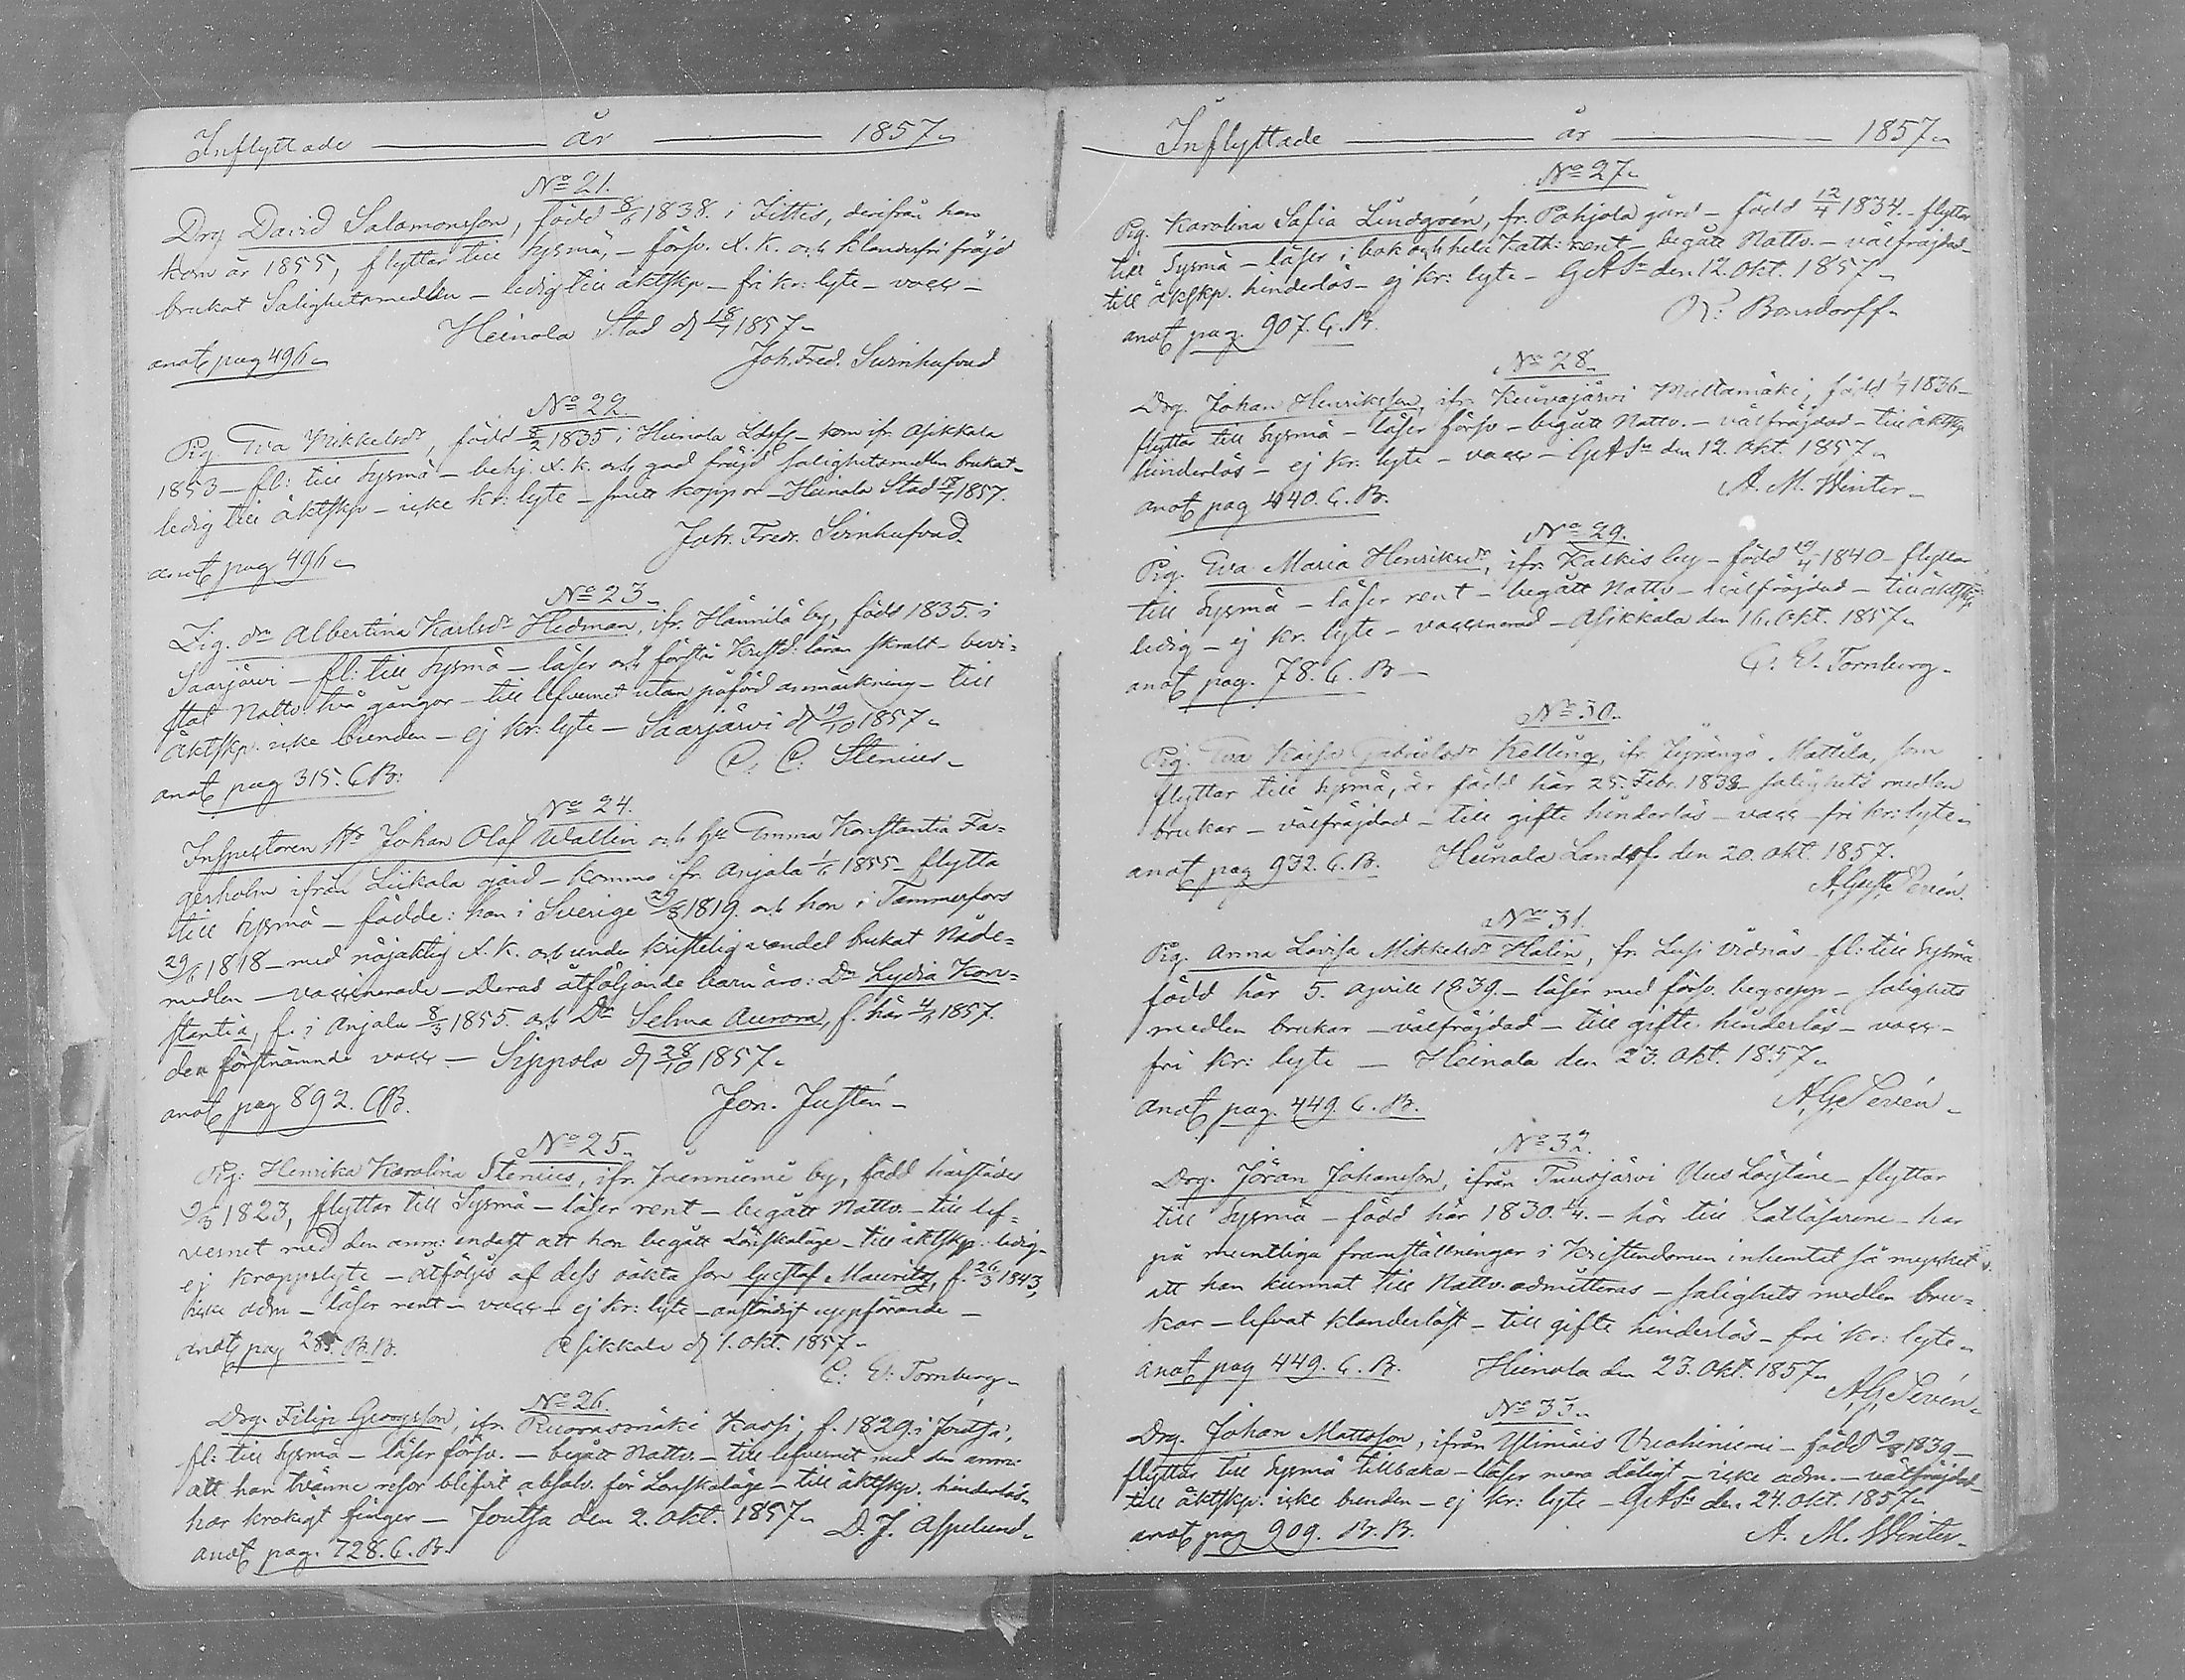 Inflyttade år 1857
No 21.
Drg David Salamonsson, född 8/6 1838. i Jittis, derifrån han
kom år 1855, flyttar till Sysmä, - försv. X. K. och klanderfri fräjd
brukat Salighetsmedlen - ledig till äktskp - fri kr: lyte - vacc -
Heinola Stad d 18/7 1857
anot pag 496
Joh. Fred. Svinhufvud
No 22.
Pig Eva Mikkelsdr, född 8/2 1835 i Heinola Ldsf - kom ifr. Asikkala
1853 - fl: till Sysmä - behj. X. K. och god fräjd salighetsmedlen brukat
ledig till äktskp - icke kr: lyte - haft koppor - Heinola Stad 1857.
Joh. Fredr. Svinhufvud
anot pag 496
No 23
Pig. dn Albertina Karlsdr Hedman, ifr. Hännilä by, född 1835. i
Saarjärvi - fl: till Sysmä - läser och förstår Kristd: läran skralt - bevi=
stat Nattv. två gångor - till lefvernet utan påförd anmärkning - till
äktskp. icke bunden - ej kr: lyte - Saarjärvi d 19/10 1857
C. C. Stenius
anot pag 315. C.B:
No 24.
Inspectoren Hr Johan Olof Wallin och h: Emma Konstantia Fa=
gerholm ifrån Liikala gård - kommo ifr. Anjala 1/6 1855 - flytta
till Sysmä - födde: han i Sverige 29/8 1819. och hon i Tammerfors
29/6 1818 - med nöjaktig X. K. och under kristelig vandel brukat Nåde=
medlen - vaccinerade - Deras åtföljande barn äro: Dr Lydia Kon=
stantia, f. i Anjala 8/3 1855. och Dr Selma Aurora, f. här 1857.
den förstnämnde vacc - Sippola d 28/10 1857
anot pag 892. C.B.
Jon. Justén
No 25
Pig: Henrika Karolina Stenius, ifr. Joenniemi by, född härstädes
9/3 1823, flyttar till Sysmä - läser rent - begått Nattv. - till lef=
vernet med den anm: endast att hon begått Lönskaläge - till äktskp: ledig
ej kroppslyte - åtföljes af dess oäkta son Gustaf Mauritz, f. 26/3 1843,
icke adm - läser rent - vacc - ej kr: lyte - anständigt uppförande -
anot pag 285. B.B. Asikkala d 1. Okt. 1857
C: E: Tornberg
No 26.
Drg. Filip Georgsson, ifr. Ruorasmäki Kassi, f. 1829. i Joutsa,
fl: till Sysmä - läser försv. - begått Nattv. - till lefvernet med den anm:
att han tvänne resor blifvit absolv. för Lönskaläge - till äktskp. hinderlös
har krokigt finger - Joutsa den 2. Okt. 1857
D. J. Asplund
anot pag. 728. C. B.
Inflyttade år 1857
No 27
Pig. Karolina Sofia Lindgrén, fr. Pohjola gård - född 12/4 1834. - flyttar
till Sysmä - läser i bok och hela Kath: rent - begått Nattv. - välfräjdad
till äktskp. hinderlös - ej kr: lyte - G A S den 12. Okt. 1857
anot pag. 907. C. B.
K: Bonsdorff
No 28
Drg. Johan Henriksson, ifr. Kuivajärvi Mieltamäki, född 1/7 1836 -
flyttar till Sysmä - läser försv - begått Nattv. - välfräjdad - till äktskp
hinderlös - ej kr. lyte - vacc - G A S den 12. Okt. 1857
A. M. Winter
anot pag 440. C. B.
No 29.
Pig. Eva Maria Henriksdr, ifr. Kalkis by - född 19/4 1840 - flyttar
till Sysmä - läser rent - begått Nattv - välfräjdad - till äktskp
ledig - ej kr. lyte - vaccinerad - Asikkala den 16. Okt. 1857
C: E. Tornberg
anot pag. 78. C. B
No 30
Pig. Eva Kaisa Gabrielsdr Kelling, ifr. Jyrängö Mattila, som
flyttar till Sysmä, är född här 25. Febr. 1832 - salighets medlen
brukar - välfräjdad - till gifte hinderlös - vacc - fri kr: lyte
anot pag 932. C. B. Heinola Landsf. den 20. Okt. 1857.
A. Gust. Levén.
No 31.
Pig. Anna Lovisa Mikkelsdr Halin, fr. Lusi Vidnäs - fl: till Sysmä
född här 5. April 1839. - läser med försv. begrepp - salighets
medlen brukar - välfräjdad - till gifte hinderlös - vacc -
fri kr: lyte - Heinola den 23. Okt. 1857
anot pag. 449. C. B.
A. G. Levén
No 32.
Drg. Jöran Johansson, ifrån Tuusjärvi Uus Löytäne - flyttar
till Sysmä - född här 1830. 4/4. - hör till Lallåsarene - har
på muntliga framställningar i Kristendomen inhemtat så mycket
att han kunnat till Nattv. admitteras - salighets medlen bru=
kar - lefvat klanderlöst - till gifte hinderlös - fri kr: lyte
anot pag 449. C. B. Heinola den 23. Okt. 1857
A. G. Levén
No 33
Drg. Johan Mattsson, ifrån Ylimäis Vuohiniemi - född 9/8 1839 -
flyttar till Sysmä tillbaka - läser mera dåligt - icke adm. - välfräjdad
till äktskp: icke bunden - ej kr: lyte - G A S den 24. Okt. 1857
anot pag 909. B. B.
A. M. Winter